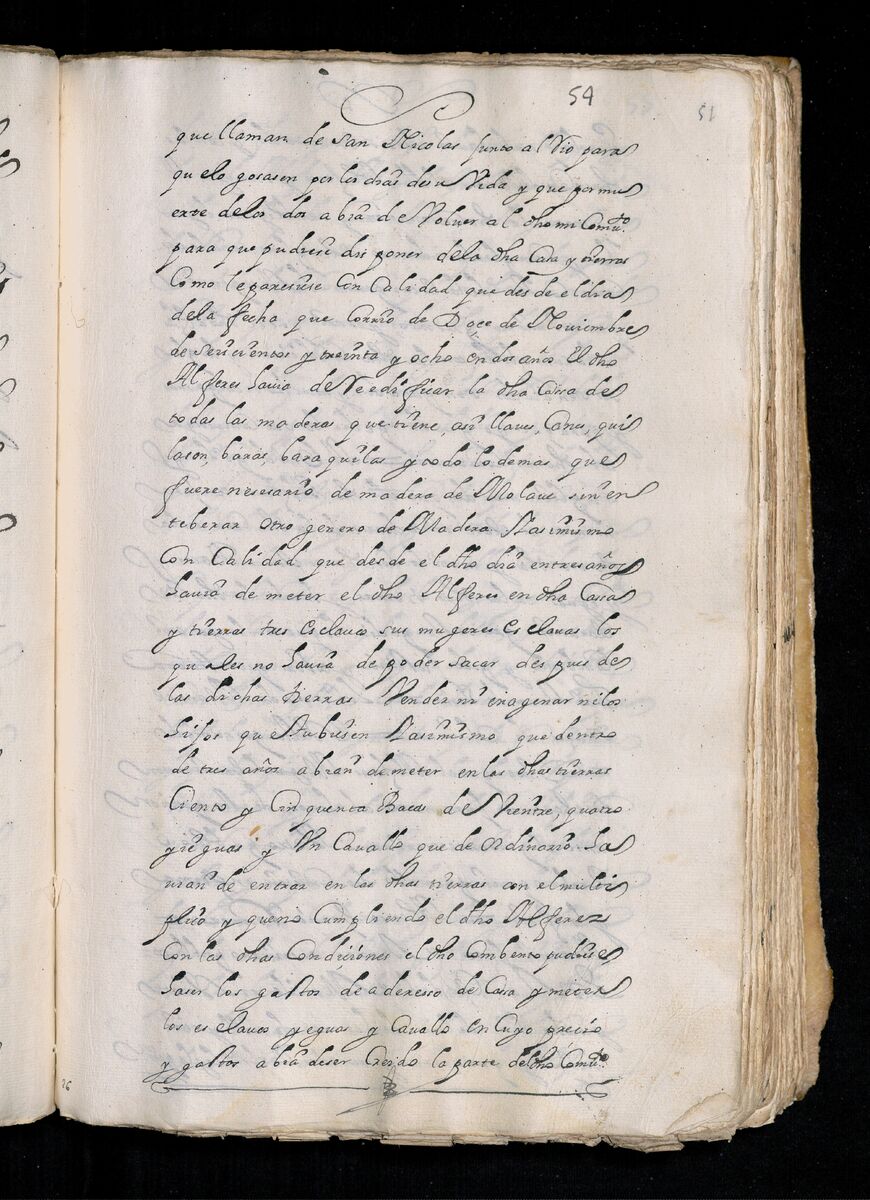 54
51
que llaman de san Nicolas junto al Rio para
que lo gosasen por los dias de su Vida y que por mu
erte de los dos abia de Voluer al dho mi Comu.to
para que pudiese dis poner dela dha Casa y tierras
Como le paresiese Con Calidad que des de el dia
dela fecha que Corrio de Doçe de Nouiembre
de seiscientos y treinta y ocho en dos años El dho
Alferes hauia de Reedificar la dha Cassa de
todas las maderas que tiene, asi llaues, Canes, qui
lason, baras, baraquilas y todo lo demas que
fuere nesesario de madera de Molaue sin en
tiberar otro genero de Madera Yasimismo
Con Calidad que desde el dho dia entres años
hauia de meter el dho Alferes en dha Cassa
y tierras tres Esclauos sus mugeres Esclauas los
quales no hauia de poder sacar des pues de
las dichas tierras Vender ni enagenar ni los
hijos que tubiesen Yasimismo que dentro
de tres años abian de meter en las dhas tierras
Ciento y Cinquenta Bacas de Vientre, quatro
yeguas y Vn Cauallo que de Ordinario ha
uian de entrar en las dhas tierras con el multi
plico y que no Cumpliendo el dho Alferez
Con las dhas Condiciones el dho Combento pudiese
haser los gastos de aderesso de Cassa y meter
los esclauos yeguas y Cauallo en Cuyo precio
y gastos abia de ser Creido la parte del dho Comu.to
26